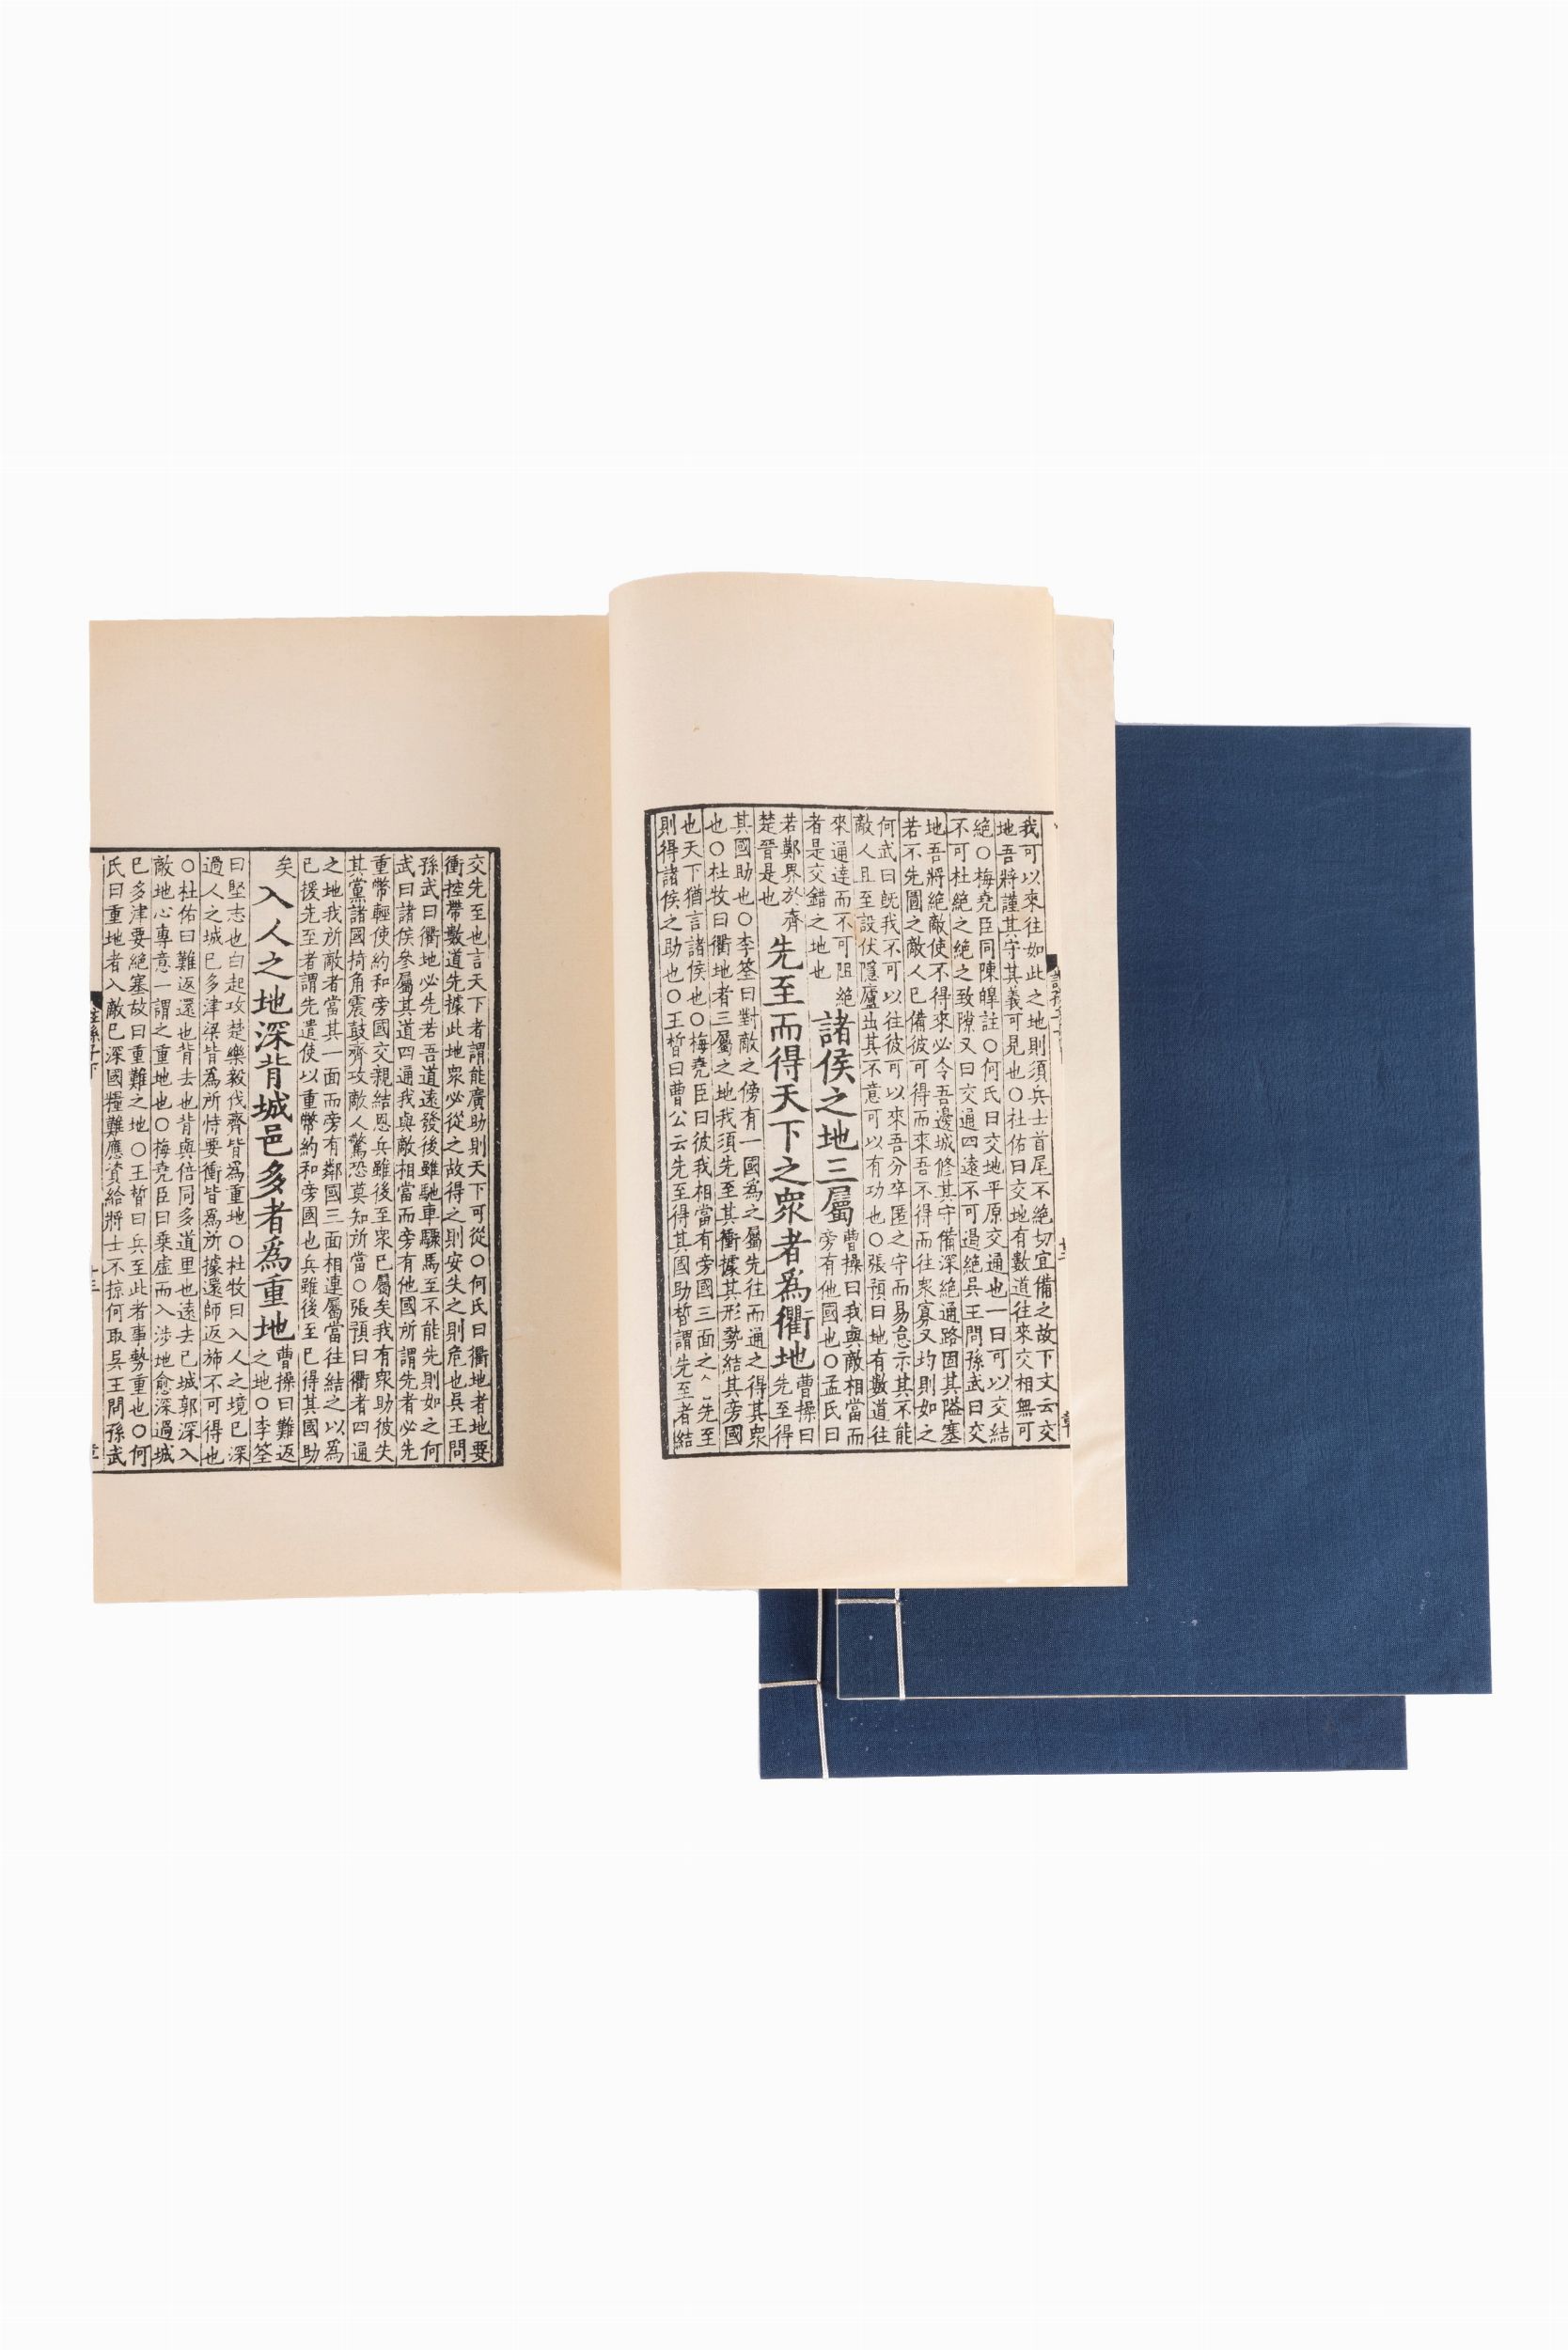 我可以來往如此之地則須兵士首尾不絶切宜備之故下文云交
地吾將謹其守其義可見也○杜佑曰交地有數道往來交相無可
絶○梅堯臣同陳皥註○何氏曰交地平原交通也一曰可以交結
不可杜絶之絶之致隙又曰交通四遠不可遏絶吳王問孫武曰交
地吾將絶敵使不得來必令吾邊城修其守備深絶通路固其隘塞
若不先圖之敵人已備彼可得而來吾不得而往衆寡又均則如之
何武曰旣我不可以往彼可以來吾分卒匿之守而易怠示其不能
敵人且至設伏隱廬出其不意可以有功也○張預曰地有數道往
來通達而不可阻絶
者是交錯之地也
諸侯之地三屬
曹操曰我與敵相當而
旁有他國也○孟氏曰
若鄭界於齊
楚晉是也
先至而得天下之衆者爲衢地
曹操曰
先至得
其國助也○李筌曰對敵之傍有一國爲之屬先往而通之得其衆
也○杜牧曰衢地者三屬之地我須先至其衝據其形勢結其旁國
也天下猶言諸侯也○梅堯臣曰彼我相當有旁國三面之 先至
則得諸侯之助也○王晳曰曹公云先至得其國助晳謂先至者結
交先至也言天下者謂能廣助則天下可從○何氏曰衢地者地要
衝控帶數道先據此地衆必從之故得之則安失之則危也吳王問
孫武曰衢地必先若吾道遠發後雖馳車驟馬至不能先則如之何
武曰諸侯參屬其道四通我與敵相當而旁有他國所謂先者必先
重幣輕使約和旁國交親結恩兵雖後至衆已屬矣我有衆助彼失
其黨諸國掎角震鼓齊攻敵人驚恐莫知所當○張預曰衢者四通
之地我所敵者當其一面而旁有鄰國三面相連屬當往結之以爲
已援先至者謂先遣使以重幣約和旁國也兵雖後至已得其國助
矣
入人之地深背城邑多者爲重地
曹操曰難返
之地○李筌
曰堅志也白起攻楚樂毅伐齊皆爲重地○杜牧曰入人之境已深
過人之城已多津梁皆爲所恃要衝皆爲所據還師返斾不可得也
○杜佑曰難返還也背去也背與倍同多道里也遠去已城郭深入
敵地心專意一謂之重地也○梅堯臣曰乘虛而入涉地愈深過城
已多津要絶塞故曰重難之地○王晳曰兵至此者事勢重也○何
氏曰重地者入敵已深國糧難應資給將士不掠何取吳王問孫武